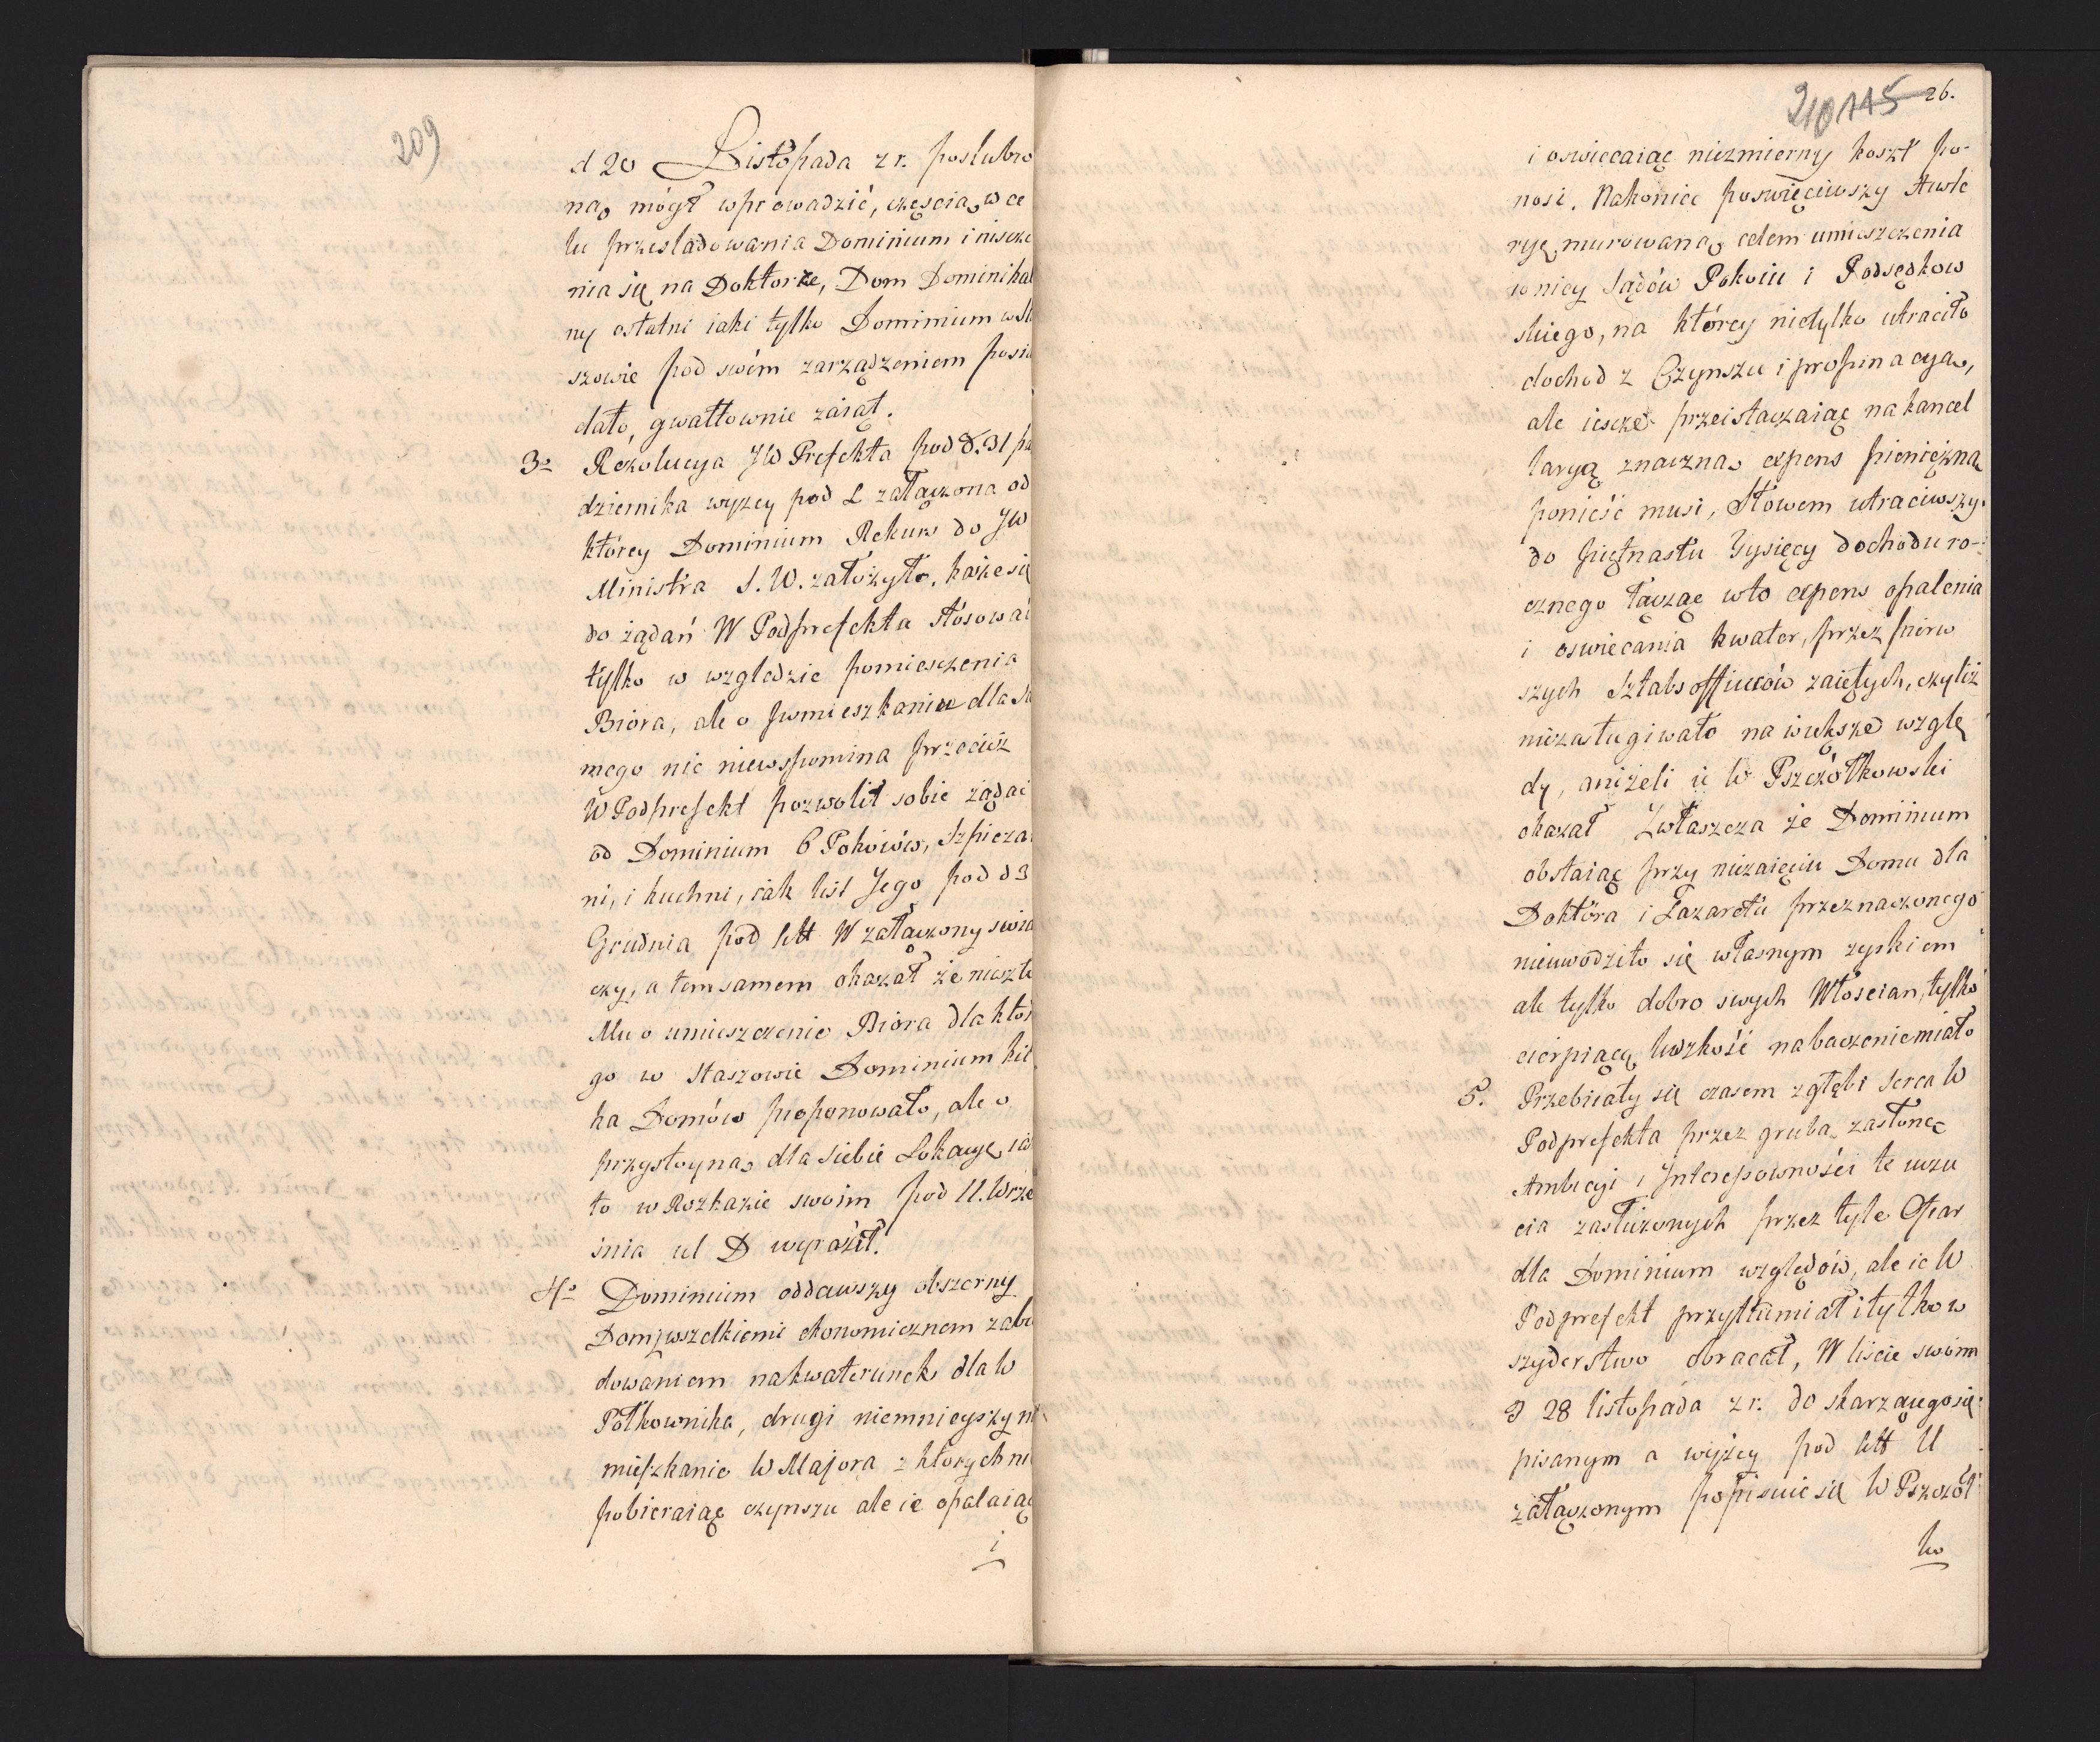 209
d 20 Listopada z r. poslubio
ną mógł wprowadzić, częscią w ce
lu przesladowania Dominium i niszcze
nia się na Doktorze, Dom Dominikal
ny ostatni iaki tylko Dominium w St
szowie pod swém zarządzeniem posia
dało, gwałtownie zaiął.
3o Rezolucya JW Prefekta pod d. 31 pa
dziernika wyzey pod L załączona od
którey Dominium Rekurs do JW
Ministra S. W. założyło, każe się
do żądań W Podprefekta stósować
tylko w wzgledzie pomiesczenia
Biora, ale o pomieszkaniu dla Sa
mego nic niewspomina przecież
W Podprefekt pozwolił sobie żądać
od Dominium 6 Pokoiów, Szpiżar
ni, i kuchni, iak list Jego pod d 3
Grudnia pod litt W załączony swiad
czy, a temsamem okazał że nieszło
Mu o umieszczenie Biora dla któr
go w Staszowie Dominium kil
ka Domów proponowało, ale o
przystoyną dla siebie Lokacyę, iak
to w Rozkazie swoim pod 11. Wrze
snia ul D wyraził.
4o Dominium oddawszy obszerny
Dom z wszelkiemi ekonomicznem zabu
dowaniem na kwaterunek dla W
Półkownika, drugi niemnieyszy na
mieszkanie W Majora z których nie
pobieraiąc czynszu ale ie opalaiąc
i
210 145 26.
i oswiecaiąc niezmierny koszt po-
nosi. Nakoniec poswięciwszy Auste
ryę murowaną celem umieszczenia
w niey Sądów Pokoiu i Podsędkow
skiego, na którey nietylko utraciło
dochod z Czynszu i propinacyą,
ale iescze przeistaczaiąc na kancel
laryą znaczną expens pieniężną
ponieść musi, Słowem utraciwszy
do piętnastu Tysięcy dochodu ro-
cznego łącząc w to expens opalenia
i oswiecania kwater, przez pierw
szych Sztabsofficerów zaiętych, czyliż
niezasługiwało na większe wzglę
dy, aniżeli ie W Pszczółkowski
okazał Zwłaszcza że Dominium
obstaiąc przy niezaięciu Domu dla
Doktora i Lazaretu przeznaczonego
nieuwodziło się własnym zyskiem
ale tylko dobro swych Włoscian, tylko
cierpiącą ludzkość na baczenie miało
5. Przebiiały się czasem z głębi serca W
Podprefekta przez grubą zasłonę
Ambicyi i Interesowności te uczu
cia zasłużonych przez tyle Ofiar
dla Dominium względów, ale ie W
Podprefekt przytłumiał i tylko w
szyderstwo obracał, W liście swoim
d 28 listopada z r. do skarzącego się
pisanym a wyżey pod litt U
załączonym popisuie się W Pszczół
ko